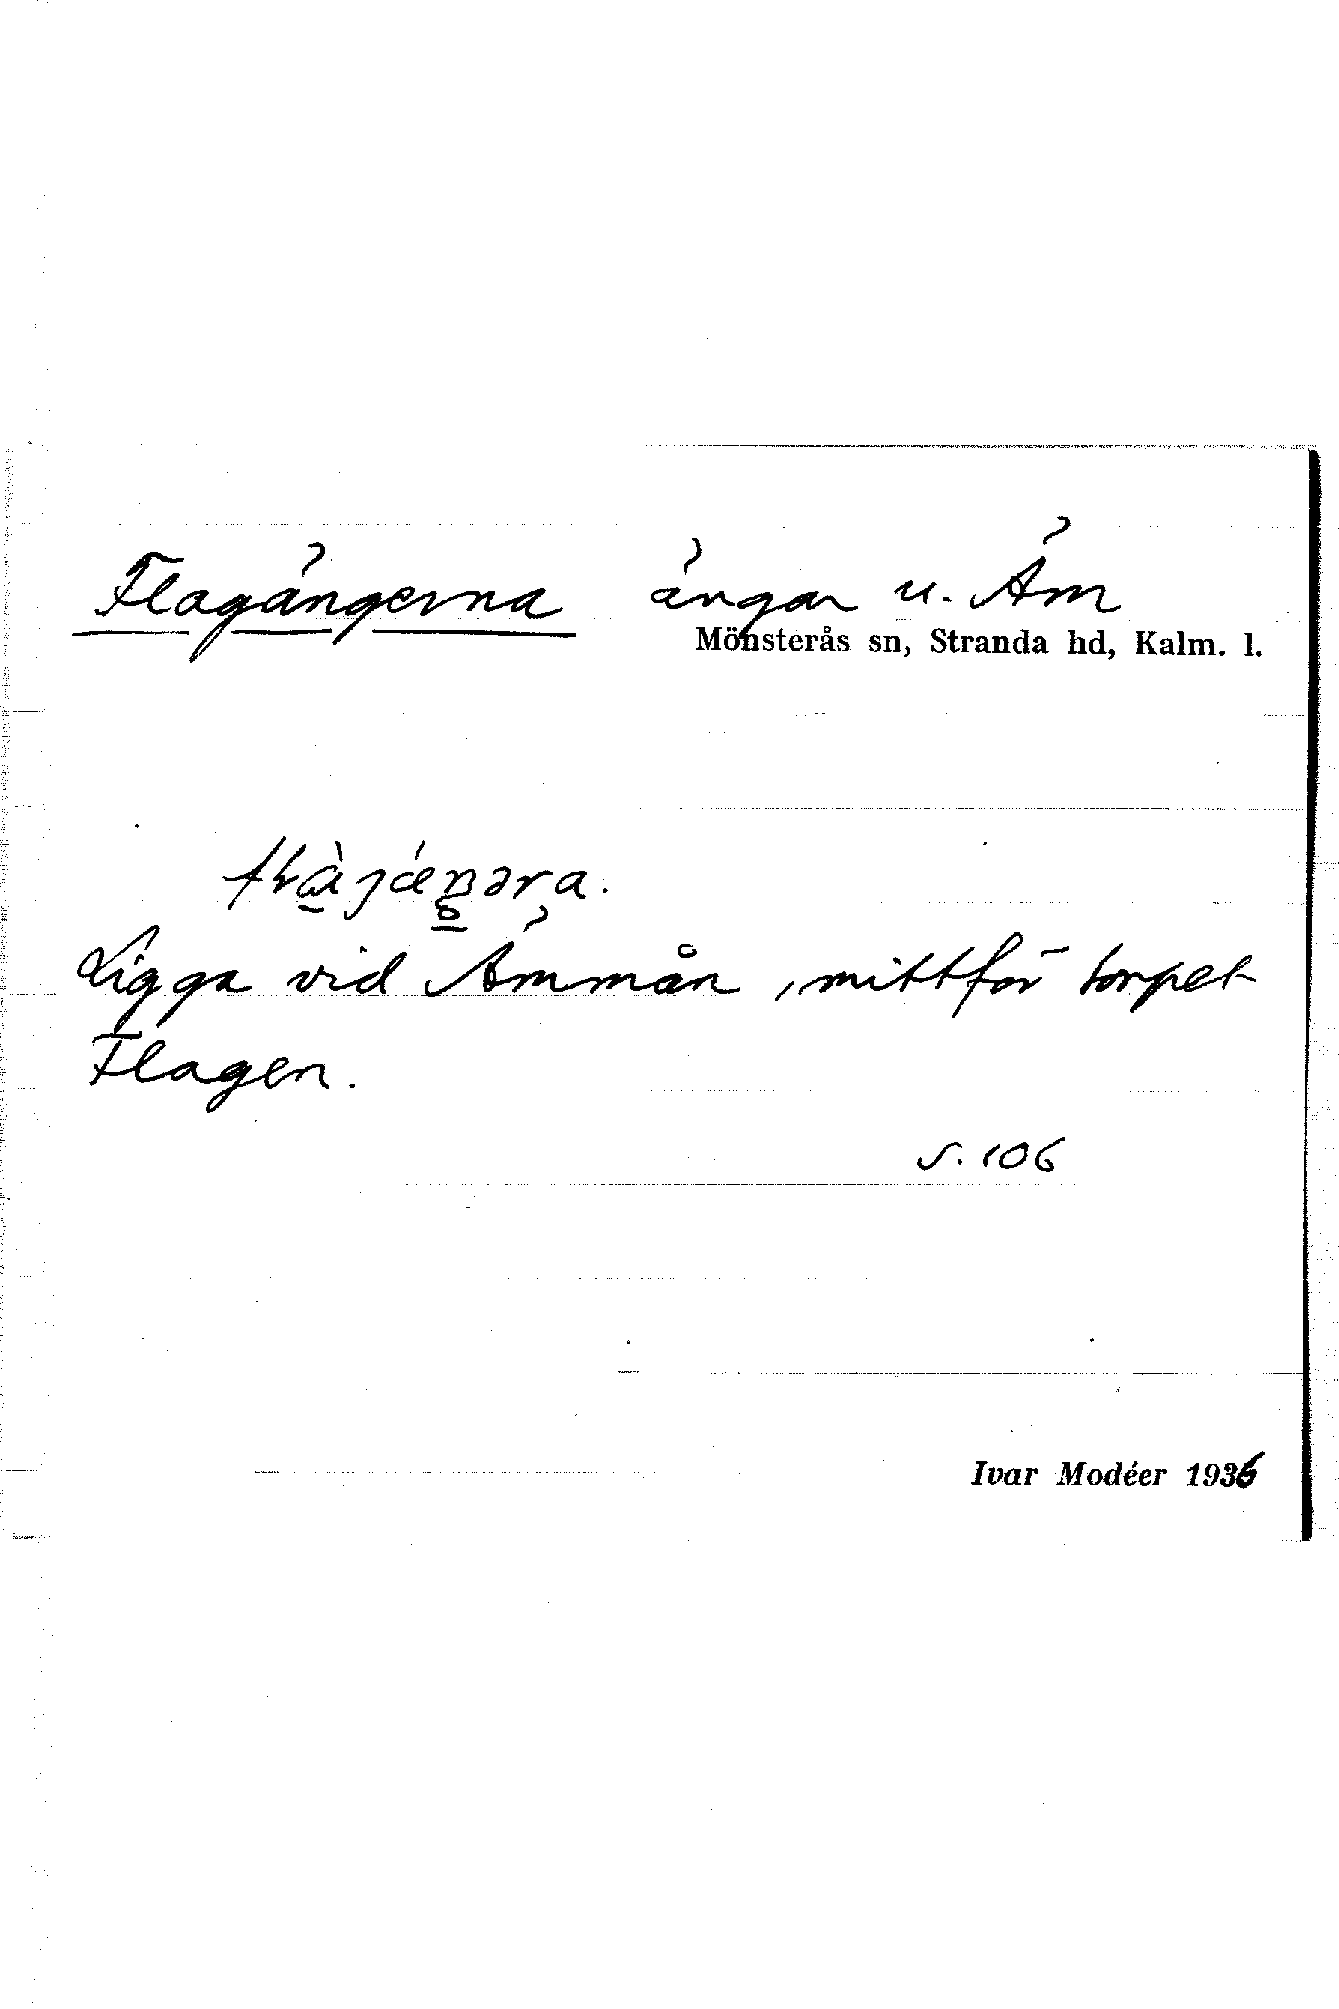 Flagängerna ängar u. Äm
Mönsterås sn, Stranda hd, Kalm. l.
Ligga vid Ämmån, mittför torpet
Flagen.
s. 106
Ivar Modéer 1936